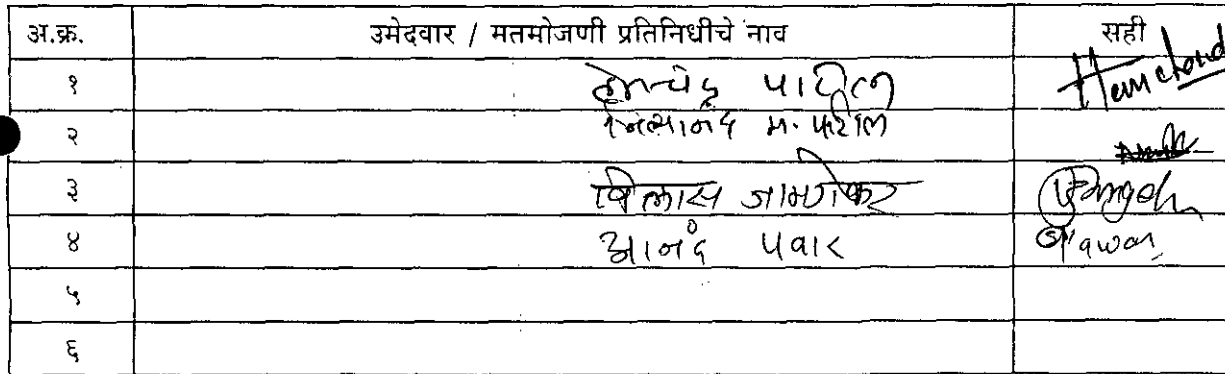 अ.क्र. उमेदवार / मतमोजणी प्रतिनिधीचे नाव सही
१ हेमचंद्र पाटील Hemchand
२ नित्यानंद म. पाटील
३ विलास जामगेकर
४ आनंद पवार Pawar
५
६